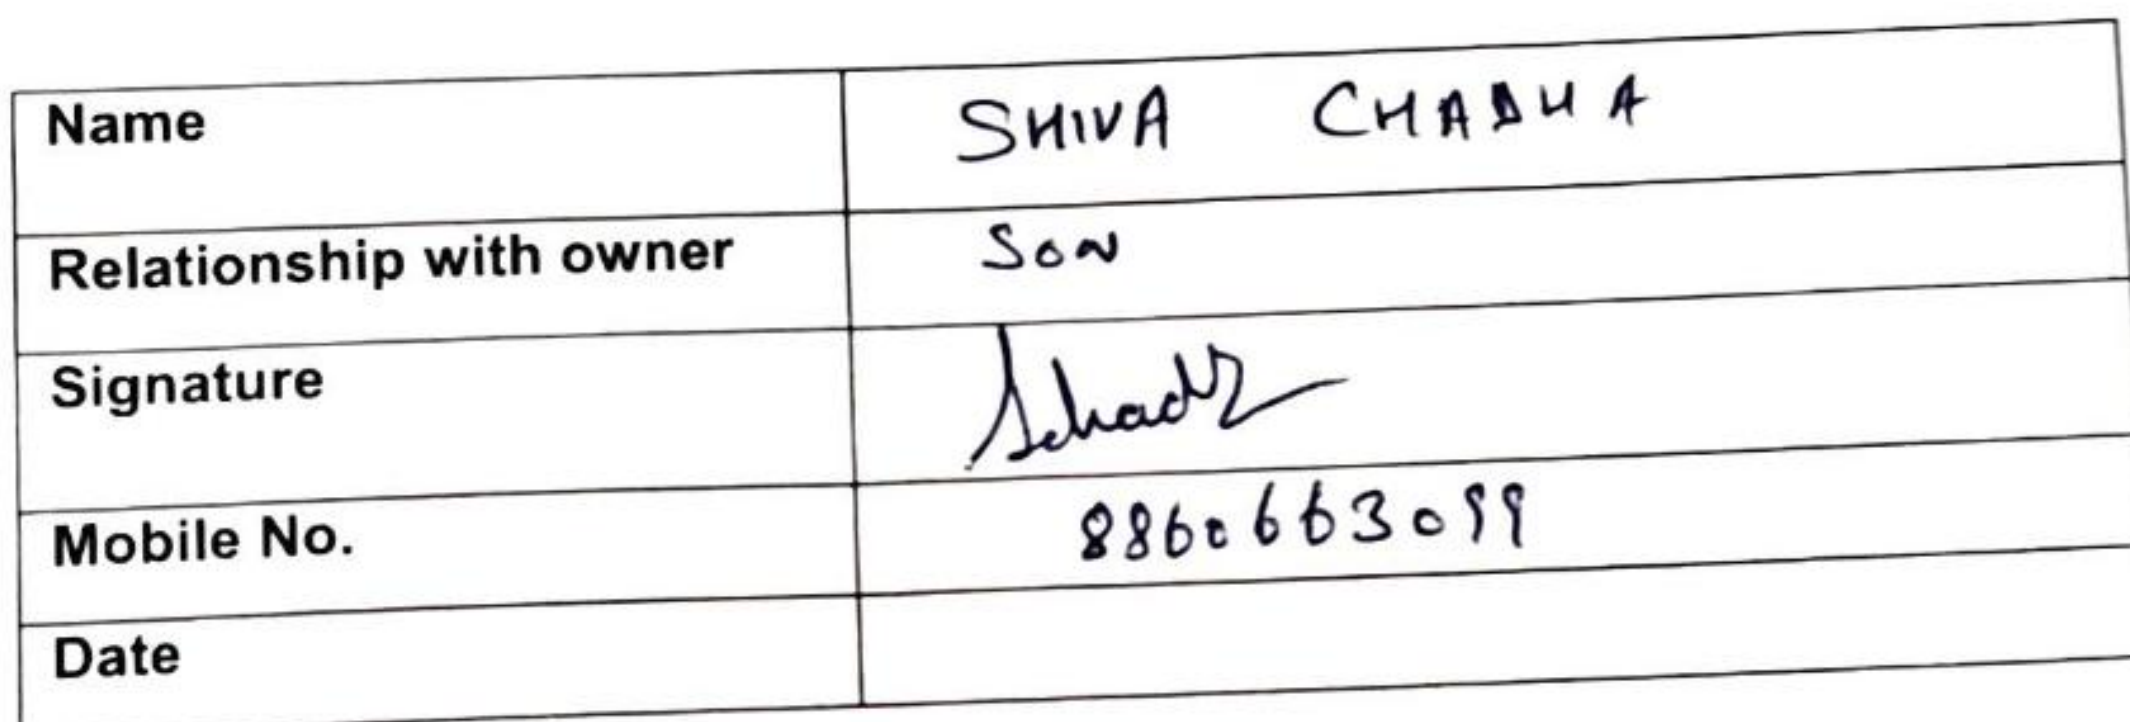 Name SHIVA CHADHA
Relationship with owner SON
Signature
Mobile No. 8860663099
Date